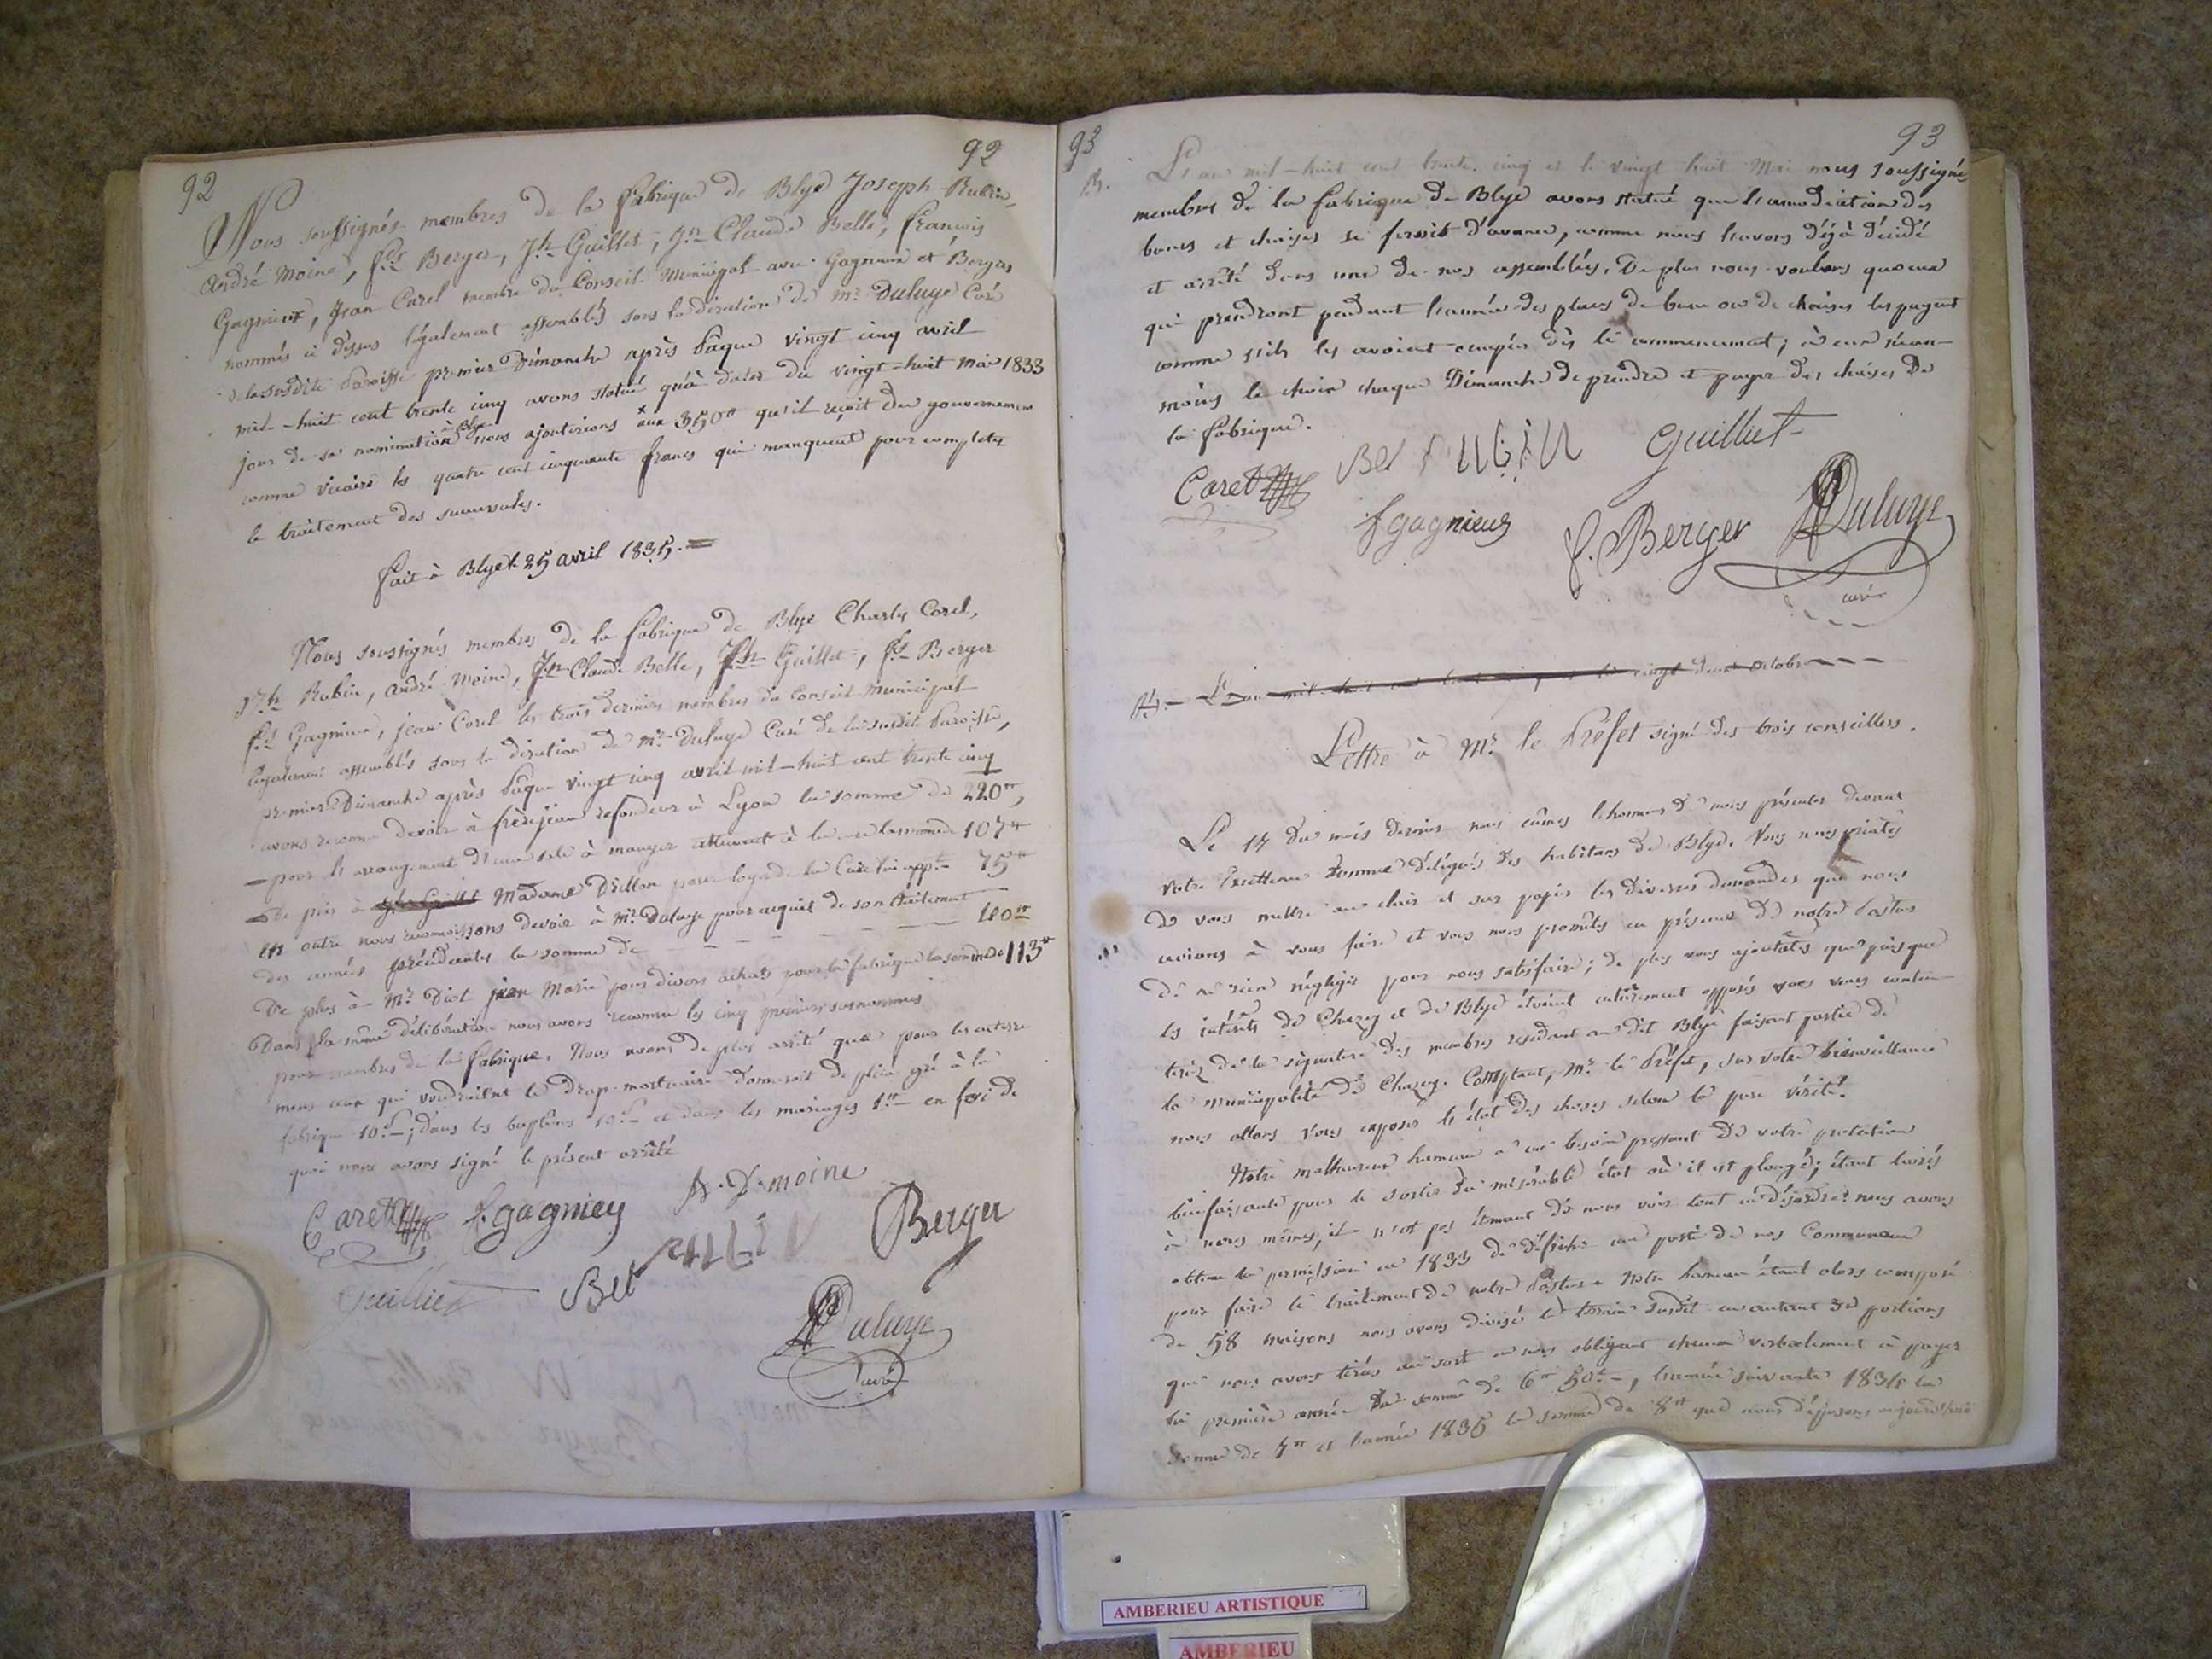 92
92
Nous soussignés membres de la fabrique de Blye Joseph Rubin,
André Moine, fçs Berger, Jh Guillet, Jn Claude Belle, françois
Gagnieux, Jean Carel membre du Conseil Municipal avec Gagnieux et Berger
nommés ci dessus légalement assemblés sous la direction de mr Duluye Curé
de la susdite Paroisse premier Dimanche après Pâque vingt cinq avril
mil-huit cent trente cinq avons statué qu'à dater du vingt-huit mai 1833
jour de sa nomination à Blye nous ajouterions aux 350tt qu'il reçoit du gouvernement
comme vicaire les quatre cent cinquante francs qui manquent pour completer
le traitement des succursales.
fait à Blye le 25 avril 1835.
Nous soussignés membres de la fabrique de Blye Charles Carel,
Jh Rubin, André Moine, Jn Claude Belle, Jh Guillet, fçs Berger
fçs Gagnieux, jean Carel les trois derniers membres du Conseil Municipal
légalement assemblés sous la direction de mr Duluye Curé de la susdite Paroisse,
premier Dimanche après Pâque vingt cinq avril mil-huit cent trente cinq
avons reconnu devoir à frèrejean refondeur à Lyon la somme de 220tt,
pour l'arrangement d'une sale à manger attenant à la cure la somme de 107tt
De plus à Madame Drillon pour loyer de la Cure lui appt. 75tt
en outre nous reconnoissons devoir à Mr Duluye pour acquit de son traitement
des années précédentes la somme de 40tt
De plus à Mr Diot jean Marie pour divers achats pour la fabrique la somme de 113tt
Dans la même délibération nous avons reconnu les cinq premiers susnommés
pour membres de la fabrique. Nous avons de plus arrêté que pour les enterre-
mens ceux qui voudroient le drap mortuaire donneroit de plein gré à la
fabrique 10s; dans les baptêmes 10s et dans les mariages 1tt en foi de
quoi nous avons signé le présent arrêté
Carel f. gagnieu A. D. moine
Bel RUBIN Berger
Guilliet
Duluye
curé
93
93
B. L'an mil-huit cent trente cinq et le vingt huit Mai nous soussignés
membres de la fabrique de Blye avons statué que l'amodiation des
bancs et chaises se feroit d'avance, comme nous l'avons déjà décidé
et arrêté dans une de nos assemblées. De plus nous voulons que ceux
qui prendront pendant l'année des places de banc ou de chaises les payent
comme s'ils les avoient occupées dès le commencement; à eux néan-
moins le choix chaque Dimanche de prendre et payer des chaises de
la fabrique.
Carel Bel RUBIN Guilliet
f gagnieux f. Berger Duluye
curé
L'an mil-huit cent trente cinq et le vingt deux octobre
Lettre à Mr le Préfet signé des trois conseillers.
Le 17 du mois dernier nous eûmes l'honneur de nous présenter devant
votre Excellence comme délégués des habitans de Blye. Vous nous priâtes
de vous mettre au clair et sur papier les diverses demandes que nous
avions à vous faire et vous nous promîtes en présence de notre Pasteur
de ne rien négliger pour nous satisfaire; de plus vous ajoutâtes que puisque
les intérêts de Chazey et de Blye étoient entièrement opposés vous vous conten-
teriez de la signature des membres residant au dit Blye faisant partie de
la municipalité de Chazey. Comptant, Mr le Préfet, sur votre bienveillance
nous allons vous exposer l'état des choses selon la pure vérité.
Notre malheureux hameau a un besoin pressant de votre protection
bienfaisante pour le sortir du misérable état où il est plongé; étant livrés
à nous mêmes, il n'est pas étonnant de nous voir tout en désordre: nous avons
obtenu la permission en 1833 de défricher une partie de nos Communaux
pour faire le traitement de notre Pasteur. Notre hameau étant alors composé
de 58 maisons nous avons divisé le terrain susdit en autant de portions
que nous avons tirées au sort en nous obligeant chacun verbalement à payer
la première année la somme de 6tt 50c, l'année suivante 1834 la
somme de 7tt et l'année 1835 la somme de 8tt que nous déposons aujourd'hui
AMBERIEU ARTISTIQUE
AMBERIEU